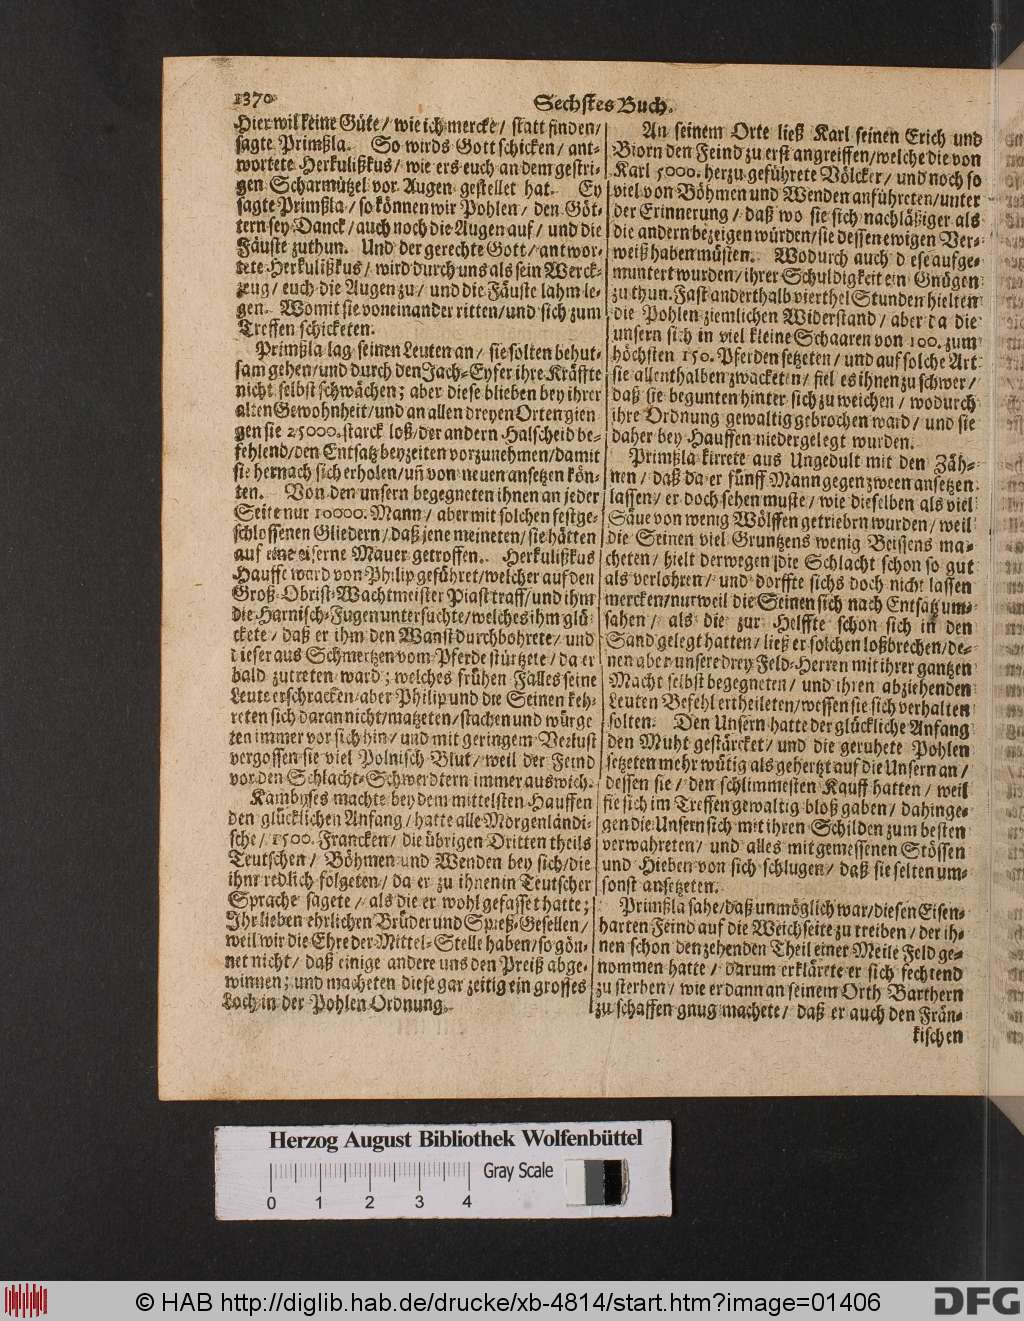 1370
Sechstes Buch.
Hier wil keine Güte/ wie ich mercke/ statt finden/
sagte Primßla. So wirds Gott schicken/ ant-
wortete Herkulißkus/ wie ers euch an dem gestri-
gen Scharmützel vor Augen gestellet hat. Ey
sagte Primßla/ so können wir Pohlen/ den Göt-
tern sey Danck/ auch noch die Augen auf/ und die
Fäuste zuthun. Und der gerechte Gott/ antwor-
tete Herkulißkus/ wird durch uns als sein Werck-
zeug/ euch die Augen zu/ und die Fäuste lahm le-
gen. Womit sie voneinander ritten/ und sich zum
Treffen schicketen.
Primßla lag seinen Leuten an/ sie solten behut-
sam gehen/ und durch den Jach-Eyfer ihre Kräffte
nicht selbst schwächen; aber diese blieben bey ihrer
alten Gewohnheit/ und an allen dreyen Orten gien
gen sie 25000. starck loß/ der andern Halscheid be-
fehlend/ den Entsatz bey zeiten vorzunehmen/ damit
sie hernach sich erholen/ uñ von neuen ansetzen kön-
ten. Von den unsern begegneten ihnen an jeder
Seite nur 10000. Mann/ aber mit solchen festge-
schlossenen Gliedern/ daß jene meineten/ sie hätten
auf eine eiserne Mauer getroffen. Herkulißkus
Hauffe ward von Philip geführet/ welcher auf den
Groß-Obrist-Wachtmeister Piast traff/ und ihm
die Harnisch-Fugen untersuchte/ welches ihm glü
ckete/ daß er ihm den Wanst durchbohrete/ und
dieser aus Schmertzen vom Pferde stürtzete/ da er
bald zutreten ward; welches frühen Falles seine
Leute erschracken/ aber Philip und die Seinen keh-
reten sich daran nicht/ matzeten/ stachen und würge
ten immer vor sich hin/ und mit geringem Verlust
vergossen sie viel Polnisch Blut/ weil der Feind
vor den Schlacht-Schwerdtern immer auswich.
Kambyses machte bey dem mittelsten Hauffen
den glücklichen Anfang/ hatte alle Morgenländi-
sche/ 1500. Francken/ die übrigen Dritten theils
Teutschen/ Böhmen und Wenden bey sich/ die
ihm redlich folgeten/ da er zu ihnen in Teutscher
Sprache sagete/ als die er wohl gefasset hatte;
Ihr lieben ehrlichen Brüder und Spieß-Gesellen/
weil wir die Ehre der Mittel-Stelle haben/ so gön-
net nicht/ daß einige andere uns den Preiß abge-
winnen; und macheten diese gar zeitig ein grosses
Loch in der Pohlen Ordnung.
An seinem Orte ließ Karl seinen Erich und
Biorn den Feind zu erst angreiffen/ welche die von
Karl 5000. herzu geführete Völcker/ und noch so
viel von Böhmen und Wenden anführeten/ unter
der Erinnerung/ daß wo sie sich nachläßiger als
die andern bezeigen würden/ sie dessen ewigen Ver-
weiß haben müsten. Wodurch auch diese aufge-
muntert wurden/ ihrer Schuldigkeit ein Gnügen
zu thun. Fast anderthalb vierthel Stunden hielten
die Pohlen ziemlichen Widerstand/ aber da die
unsern sich in viel kleine Schaaren von 100. zum
höchsten 150. Pferden setzeten/ und auf solche Art
sie allenthalben zwacketen/ fiel es ihnen zu schwer/
daß sie begunten hinter sich zu weichen/ wodurch
ihre Ordnung gewaltig gebrochen ward/ und sie
daher bey Hauffen niedergelegt wurden.
Primßla kirrete aus Ungedult mit den Zäh-
nen/ daß da er fünff Mann gegen zween ansetzen
lassen/ er doch sehen muste/ wie dieselben als viel
Säue von wenig Wölffen getriebrn wurden/ weil
die Seinen viel Gruntzens wenig Beissens ma-
cheten/ hielt derwegen die Schlacht schon so gut
als verlohren/ und dorffte sichs doch nicht lassen
mercken/ nur weil die Seinen sich nach Entsatz um-
sahen/ als die zur Helffte schon sich in den
Sand gelegt hatten/ ließ er solchen loßbrechen/ de-
nen aber unsere drey Feld-Herren mit ihrer gantzen
Macht selbst begegneten/ und ihren abziehenden
Leuten Befehl ertheileten/ wessen sie sich verhalten
solten. Den Unsern hatte der glückliche Anfang
den Muht gestärcket/ und die geruhete Pohlen
setzeten mehr wütig als gehertzt auf die Unsern an/
dessen sie/ den schlimmesten Kauff hatten/ weil
sie sich im Treffen gewaltig bloß gaben/ dahinge-
gen die Unsern sich mit ihren Schilden zum besten
verwahreten/ und alles mit gemessenen Stössen
und Hieben von sich schlugen/ daß sie selten um-
sonst ansetzeten.
Primßla sahe/ daß unmöglich war/ diesen Eisen-
harten Feind auf die Weichseite zu treiben/ der ih-
nen schon den zehenden Theil einer Meile Feld ge-
nommen hatte/ darum erklärete er sich fechtend
zu sterben/ wie er dann an seinem Orth Barthern
zu schaffen gnug machete/ daß er auch den Frän-
kischen
Herzog August Bibliothek Wolfenbüttel
Gray Scale
0 1 2 3 4
© HAB http://diglib.hab.de/drucke/xb-4814/start.htm?image=01406
DFG